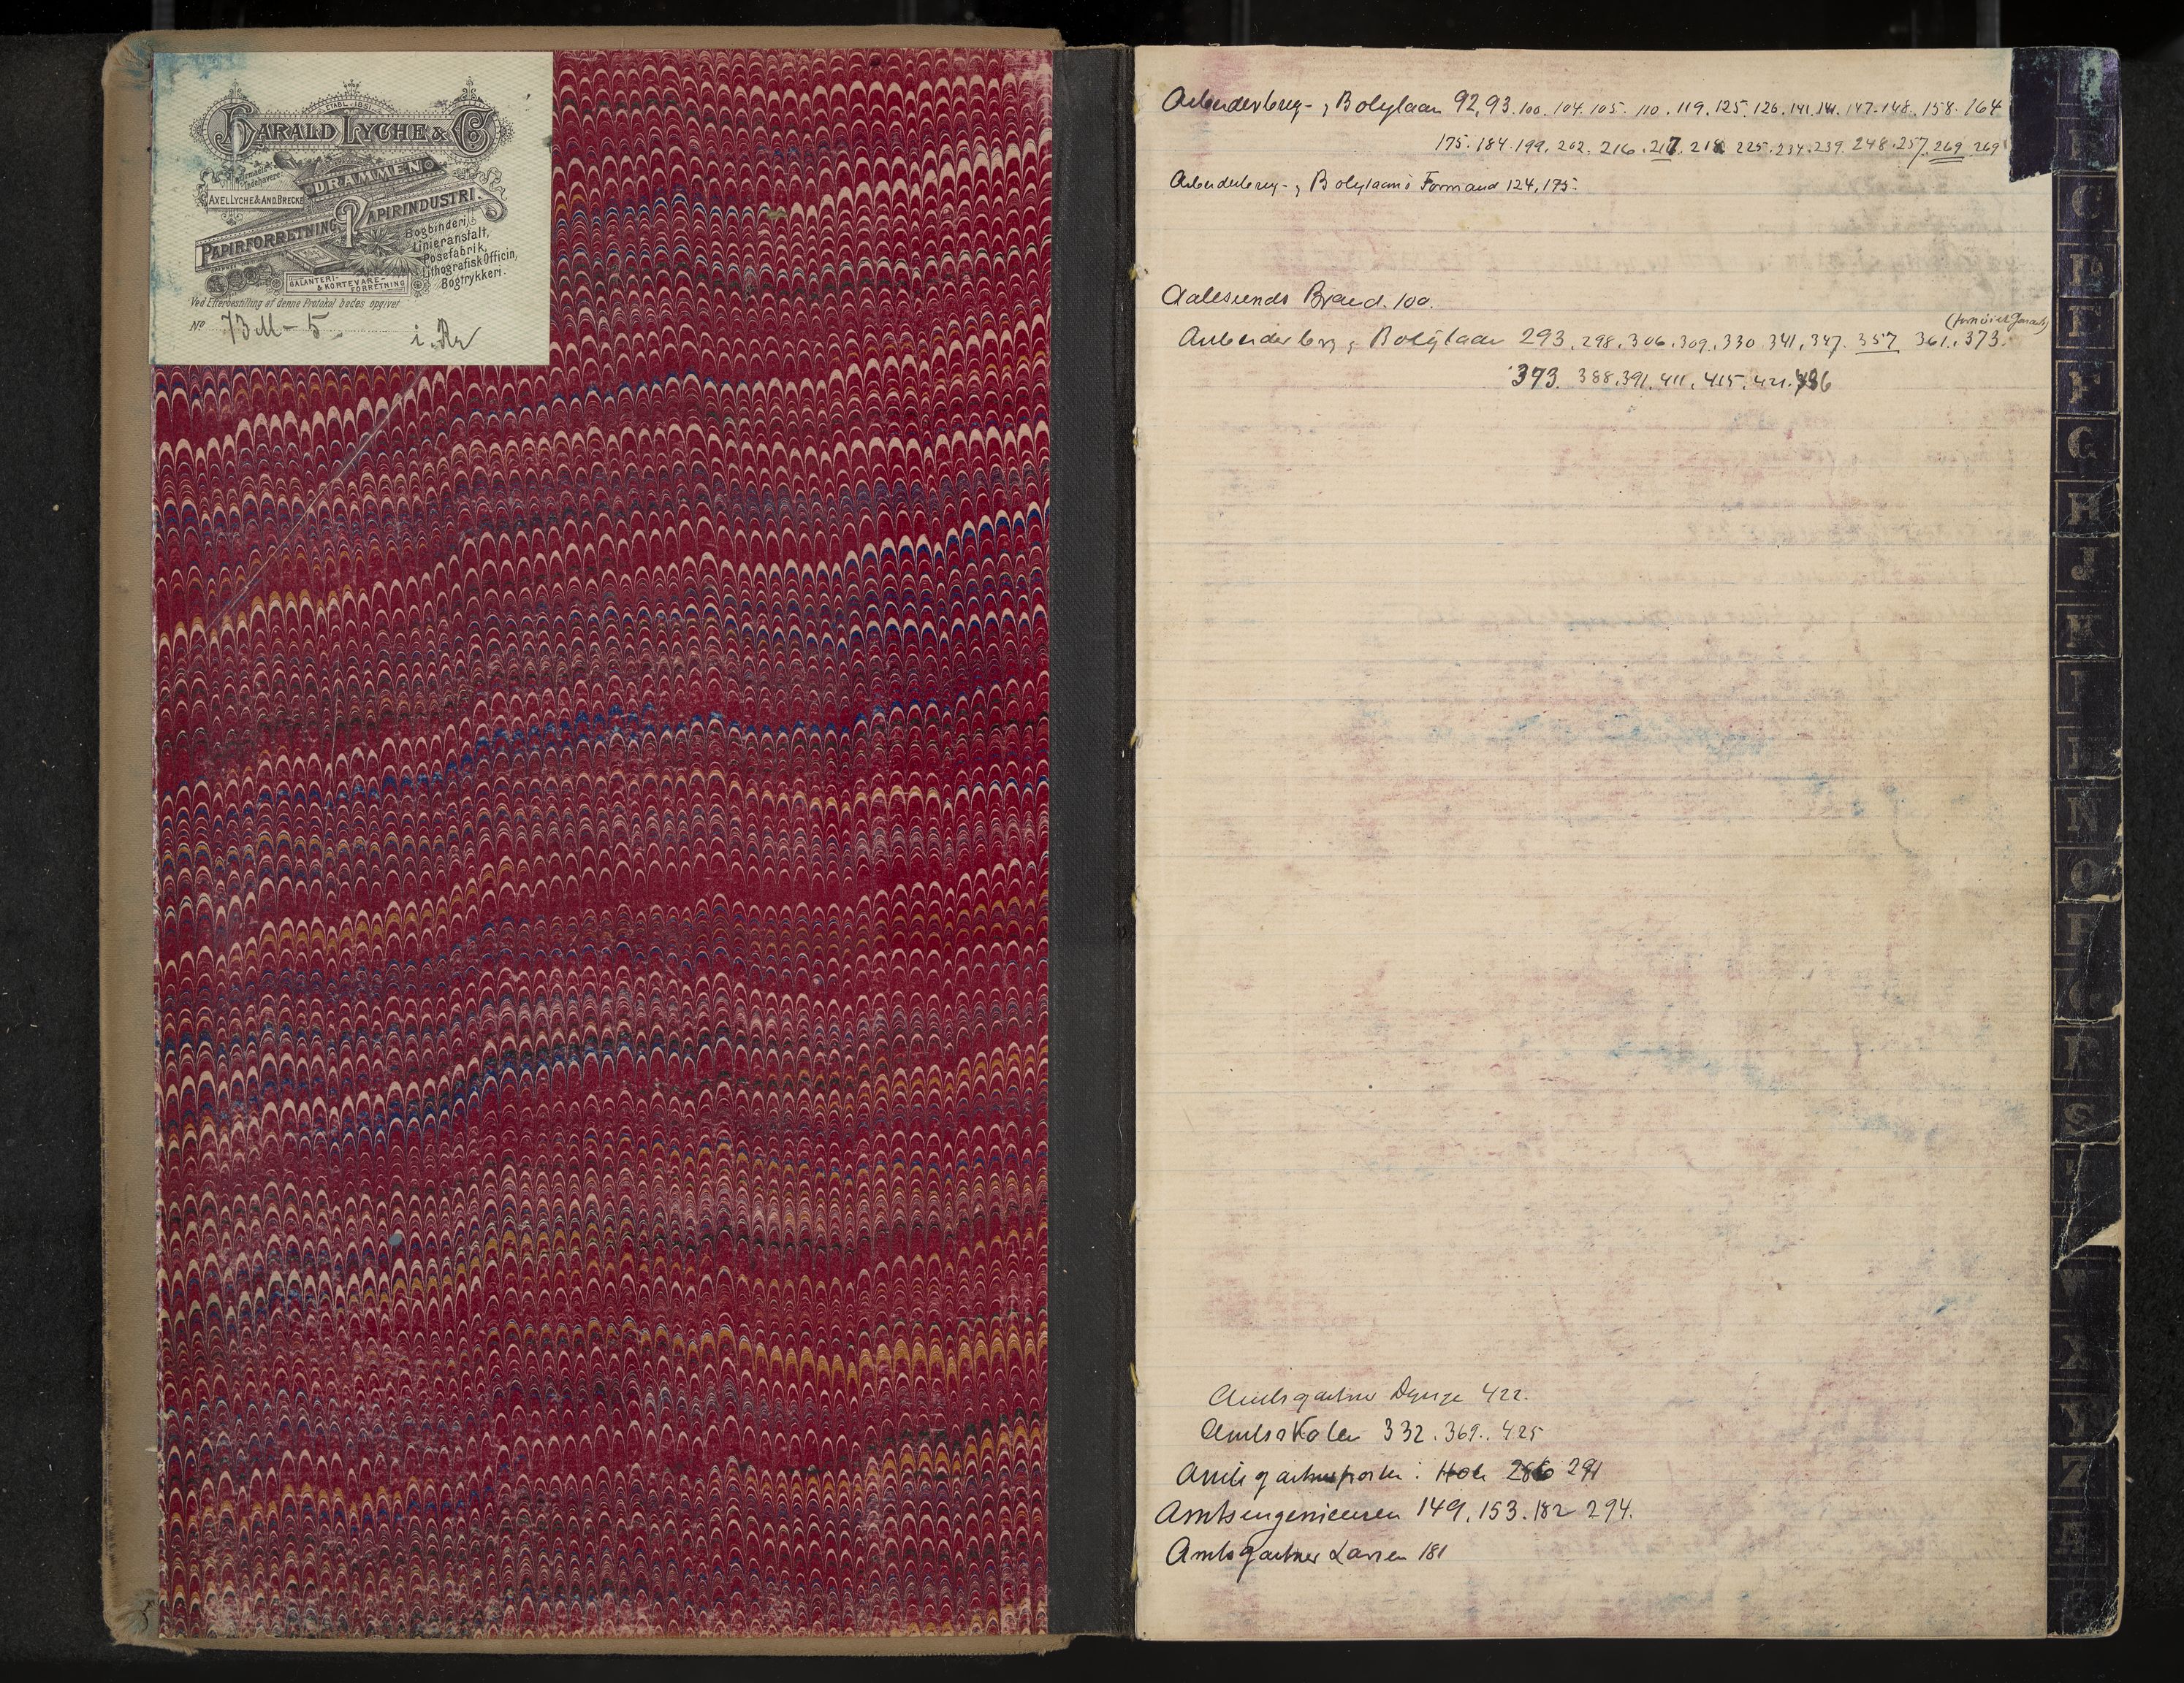 ETABL. 1851.
HARALD LYCHE & Cº
DRAMMEN
Indehavere:
AXEL LYCHE & AND. BRECKE
PAPIRFORRETNING. PAPIRINDUSTRI.
Bogbinderi,
Linieranstalt,
Posefabrik,
Lithografisk Officin,
Bogtrykkeri.
GALANTERI- & KORTEVARE FORRETNING
Ved Efterbestilling af denne Protokol bedes opgivet
Nº 73 M - 5.
Arbeiderbrug-, Boliglaan 92, 93. 100. 104. 105. 110. 119. 125. 126. 141. 144. 147. 148. 158. 164
175. 184. 199. 202. 216. 217. 218. 225. 234. 239. 248. 257. 269. 269
Arbeiderbrug-, Boliglaans Formand 124, 175.
Aalesunds Brand. 100.
Arbeiderbrg, Boliglaan 293. 298. 306. 309. 330. 341. 347. 357 361. 373.
373. 388. 391. 411. 415. 421. 436
Amtsgartner 422.
Amtsskolen 332. 369. 425
Amtsgartnerposten: Hole 286 291
Amtsingeniøren 149. 153. 182 294.
Amtsgartner Larsen 181
C
D
E
F
G
H
J
K
L
M
N
O
P
Q
R
S
W
X
Y
Z
Æ
Ø